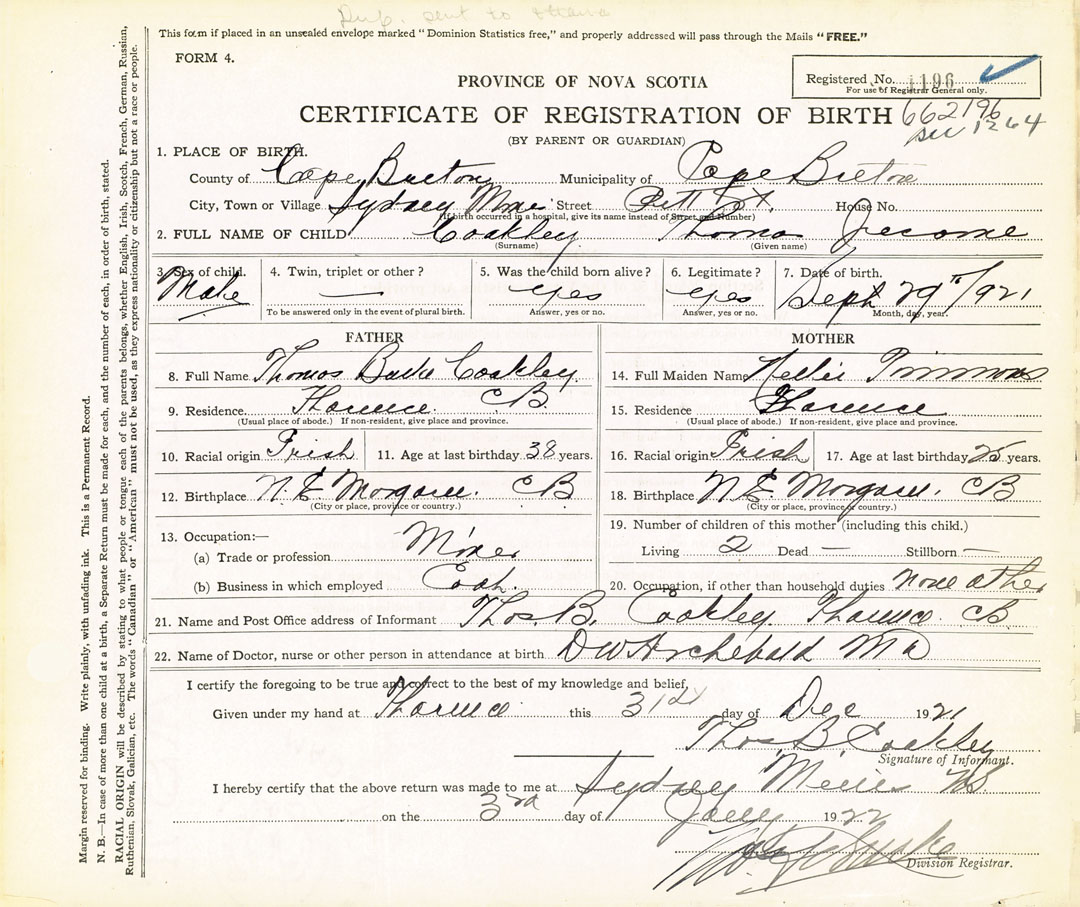 Dup. sent to Ottawa
This form if placed in an unsealed envelope marked "Dominion Statistics free," and properly addressed will pass through the Mails "FREE."
FORM 4.
Registered No. 1196
For use of Registrar General only.
PROVINCE OF NOVA SCOTIA
CERTIFICATE OF REGISTRATION OF BIRTH
662196
(BY PARENT OR GUARDIAN)
1. PLACE OF BIRTH.
County of Cape Breton Municipality of Cape Breton
City, Town or Village Sydney Mines Street House No.
(If birth occurred in a hospital, give its name instead of Street and Number)
2. FULL NAME OF CHILD Coakley Thomas Jerome
(Surname) (Given name)
3. Sex of child. 4. Twin, triplet or other? 5. Was the child born alive? 6. Legitimate? 7. Date of birth.
Male — yes yes Sept 29th 1921
To be answered only in the event of plural birth. Answer, yes or no. Answer, yes or no. Month, day, year.
FATHER
8. Full Name Thomas Coakley
9. Residence Florence CB.
(Usual place of abode.) If non-resident, give place and province.
10. Racial origin Irish 11. Age at last birthday 38 years.
12. Birthplace N. E Margaree. CB
(City or place, province or country.)
13. Occupation:—
(a) Trade or profession Miner
(b) Business in which employed Coal.
MOTHER
14. Full Maiden Name Nellie Timmons
15. Residence Florence
(Usual place of abode.) If non-resident, give place and province.
16. Racial origin Irish 17. Age at last birthday 25 years.
18. Birthplace N. E Margaree. CB
(City or place, province or country.)
19. Number of children of this mother (including this child.)
Living 2 Dead — Stillborn —
20. Occupation, if other than household duties none other
21. Name and Post Office address of Informant Thos B. Coakley Florence CB
22. Name of Doctor, nurse or other person in attendance at birth DW Archibald MD
I certify the foregoing to be true and correct to the best of my knowledge and belief,
Given under my hand at Florence this 31st day of Dec 1921
Thos B Coakley
Signature of Informant.
I hereby certify that the above return was made to me at Sydney Mines NS.
on the 3rd day of Jany 1922
Division Registrar.
Margin reserved for binding. Write plainly, with unfading ink. This is a Permanent Record.
N. B.—In case of more than one child at a birth, a Separate Return must be made for each, and the number of each, in order of birth, stated.
RACIAL ORIGIN will be described by stating to what people or tongue each of the parents belongs, whether English, Irish, Scotch, French, German, Russian,
Ruthenian, Slovak, Galician, etc. The words "Canadian" or "American" must not be used, as they express nationality or citizenship but not a race or people.